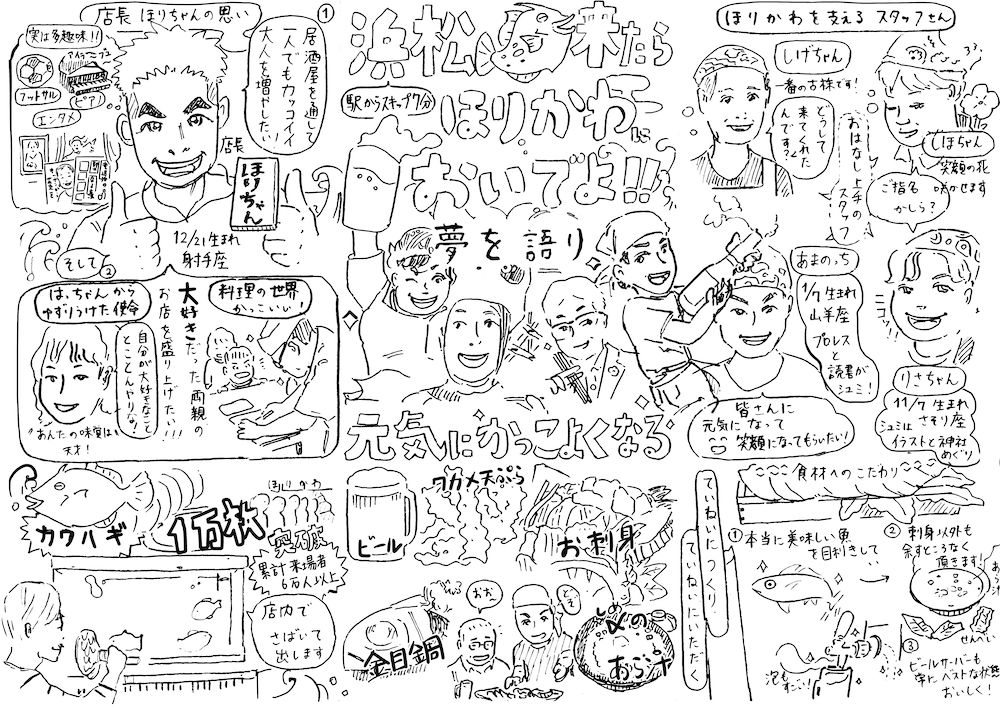 店長 ほりちゃんの思い
①
実は多趣味!!
フットサル
ピアノ
エンタメ
居酒屋を通して
一人でもカッコイイ
大人を増やしたい!
店長
ほりちゃん
12/21生まれ
射手座
そして
②
はっちゃんから
ゆずりうけた使命
自分が大好きなこと
とことんやりな!
あんたの味覚は
天才!
料理の世界
かっこいい
大好きだった両親の
お店を盛り上げたい!!!
浜松 来たら
駅からスキップ7分
ほりかわに
おいでよ!!
夢を語り
元気にかっこよくなる
ほりかわを支える スタッフさん
しげちゃん
一番の古株です!
どうして
来てくれた
んです?
おはなし上手の
スタッフ
しほちゃん
笑顔の花
咲かせます
ご指名
かしら?
あまのっち
1/7 生まれ
山羊座
プロレスと
読書が
シュミ!
皆さんに
元気になって
笑顔になってもらいたい!
ニコッ!
りさちゃん
11/7 生まれ
さそり座
シュミは
イラストと神社
めぐり
カワハギ
1万枚
ほりかわ
突破
累計来場者
6万人以上
店内で
さばいて
出します
ビール
ワカメ天ぷら
お刺身
金目鍋
おお〜
どうぞ
〆の
しめ
おらず
ていねいにつくり
ていねいにいただく
食材へのこだわり
① 本当に美味しい魚
を目利きして
② 刺身以外も
余すところなく
頂きます!
せんべい
③
ビールサーバーも
常にベストな状態
おいしく!
泡も
すごい!